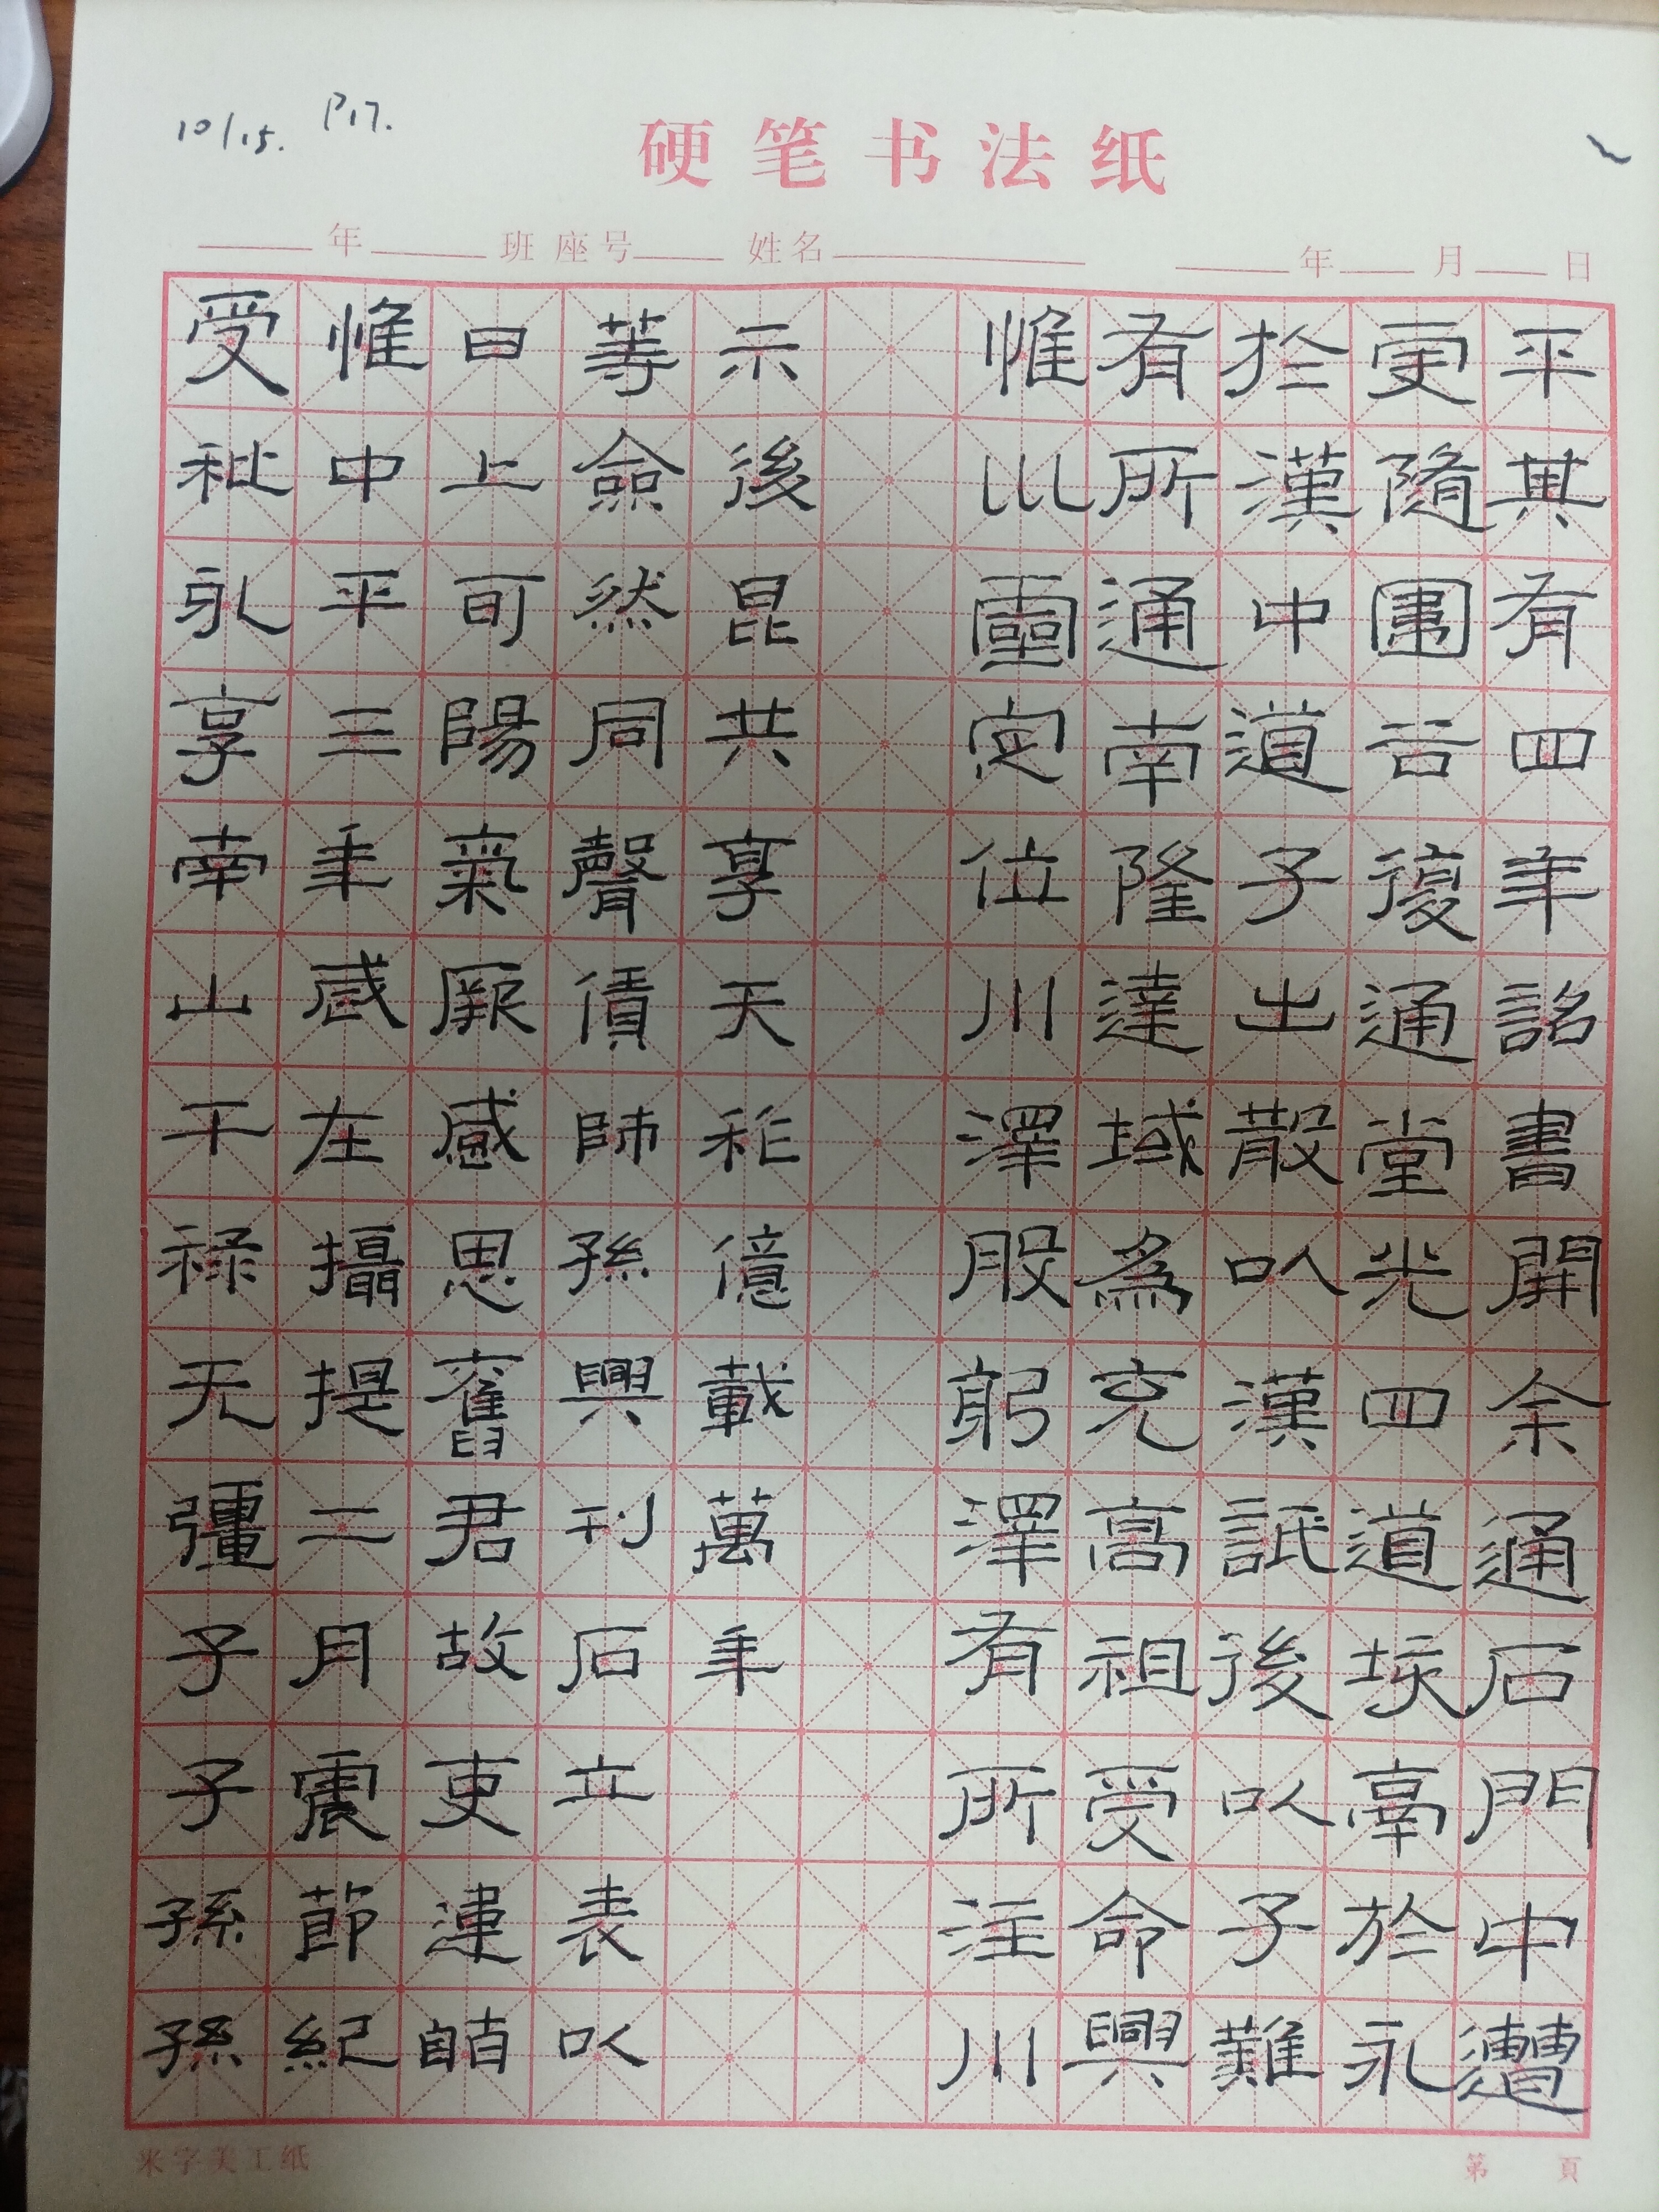 10/15. P17.
硬笔书法纸
年 班 座号 姓名 年 月 日
受祉永享南山干祿无疆子子孫孫
惟中平三年歲在攝提二月震節紀
日上旬陽氣厥感思舊君故吏
等僉然同聲賃師孫興刊石立表以
示後昆共享天祚億載萬年
惟巛靈定位川澤股躬澤有所注川
有所通南隆達域為充高祖受命興
於漢中道子出散以漢詆後以子難
更隨圍谷復通堂光四道垓鬲於永
平其有四年詔書開余通石門中遭
米字美工纸
第 頁